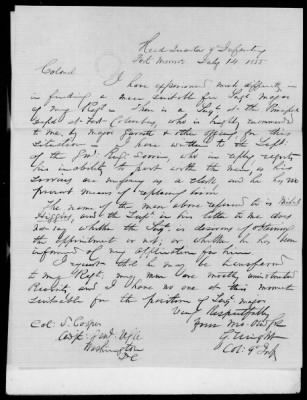 Head Quarters 9th Infantry
Fort Monroe July 14, 1855
Colonel
I have experienced much difficulty
in finding a man suitable for Sergt Major
of my Regt - There is a Sergt at the
Depot at Fort Columbus, who is highly recommended
to me, by Major & other officers for this
situation - I have written to the Supt
of the Genl Recg Service, who in reply regrets
his inability to part with the man, as his
services are required as a Clerk, and he has no
present means of replacing him.
The name of the man above referred to is
Higgins, and the Supt in his letter to me does
not say whether the Sergt is desirous of obtaining
the appointment or not; or whether he has been
informed of my application for him.
I request that he may be transferred
to my Regt, my men are mostly uninstructed
Recruits, and I have no one at this moment
suitable for the position of Sergt Major
Very Respectfully
Your Mo. Obt St
G. Wright
Col: 9th Inf
Col. S. Cooper
Adjt Genl USA
Washington
DC